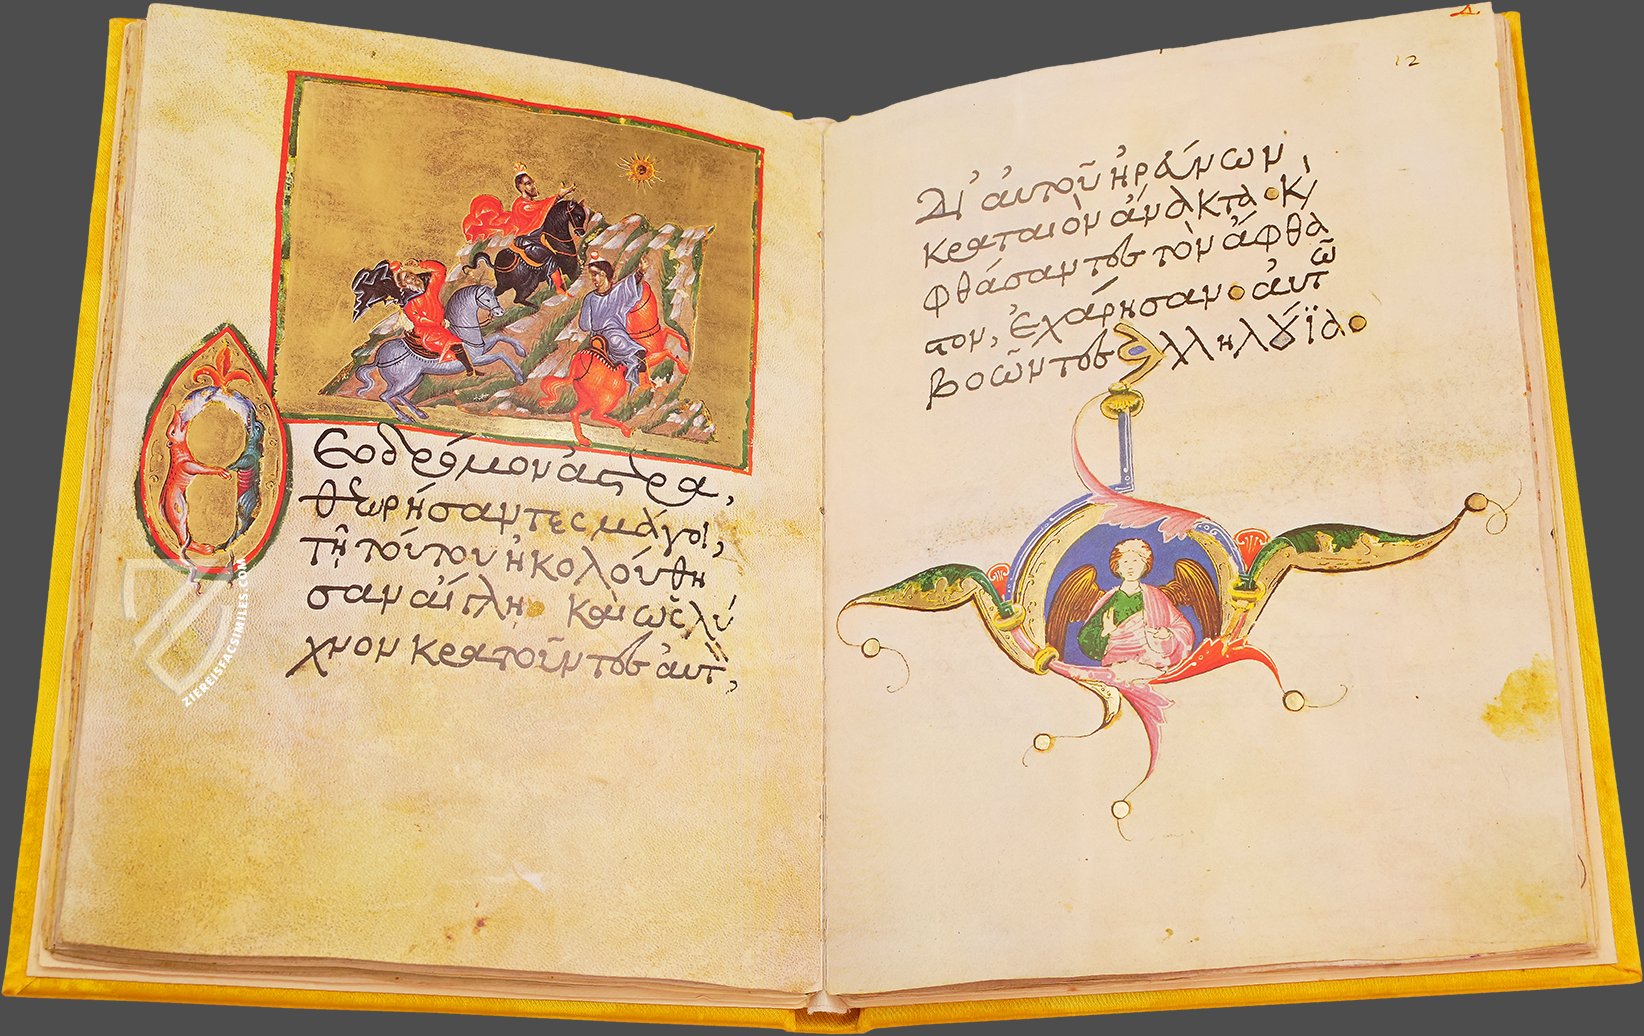 Θεοδρόμον ἀστέρα,
θεωρήσαντες μάγοι,
τῇ τούτου ἠκολούθη
σαν αἴγλῃ· καὶ ὡς λύ
χνον κρατοῦντες αὐτ,
ZIEREISFACSIMILES.COM
12
Δι' αὐτοῦ ἠρεύνων,
κραταιὸν ἄνακτα· κ/
φθάσαντες τὸν ἄφθα
στον, ἐχάρησαν· αὐτῶ
βοῶντες ἀλληλούϊα·